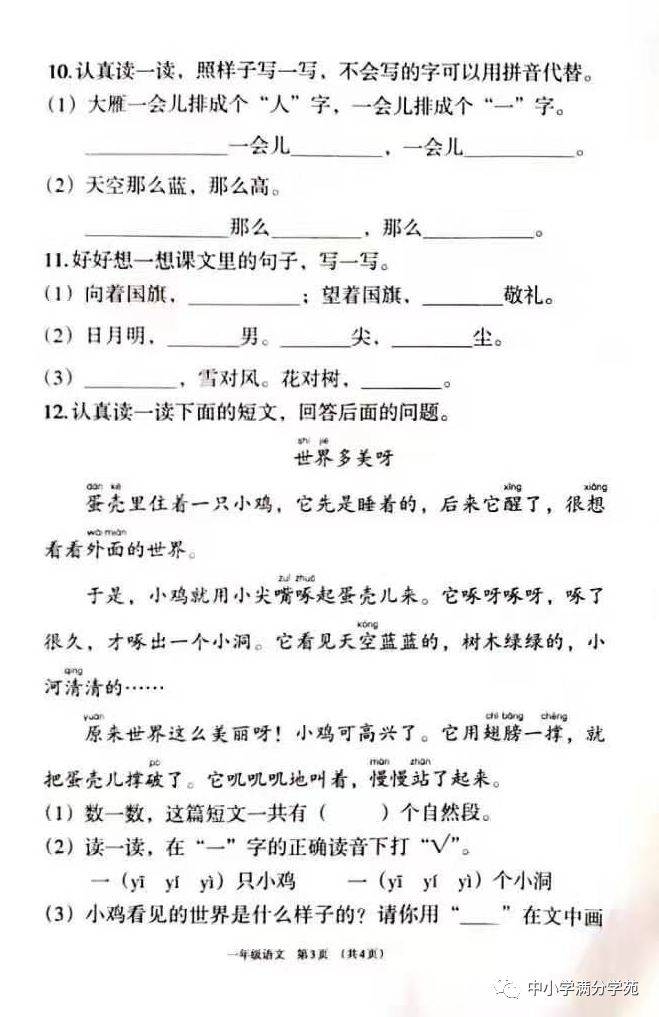 10.认真读一读，照样子写一写，不会写的字可以用拼音代替。
（1）大雁一会儿排成个“人”字，一会儿排成个“一”字。
____________一会儿________，一会儿_________。
（2）天空那么蓝，那么高。
____________那么________，那么_________。
11.好好想一想课文里的句子，写一写。
（1）向着国旗，_________；望着国旗，_______敬礼。
（2）日月明，______男。______尖，_______尘。
（3）________，雪对风。花对树，_______。
12.认真读一读下面的短文，回答后面的问题。
shì jiè
世界多美呀
dàn ké xǐng xiǎng
蛋壳里住着一只小鸡，它先是睡着的，后来它醒了，很想
wài miàn
看看外面的世界。
zuǐ zhuó
于是，小鸡就用小尖嘴啄起蛋壳儿来。它啄呀啄呀，啄了
kōng
很久，才啄出一个小洞。它看见天空蓝蓝的，树木绿绿的，小
qīng
河清清的……
yuán chì bǎng chēng
原来世界这么美丽呀！小鸡可高兴了。它用翅膀一撑，就
pò màn zhàn
把蛋壳儿撑破了。它叽叽叽地叫着，慢慢站了起来。
（1）数一数，这篇短文一共有（ ）个自然段。
（2）读一读，在“一”字的正确读音下打“√”。
一（yī yí yì）只小鸡 一（yī yí yì）个小洞
（3）小鸡看见的世界是什么样子的？请你用“___”在文中画
一年级语文 第3页 （共4页）
中小学满分学苑